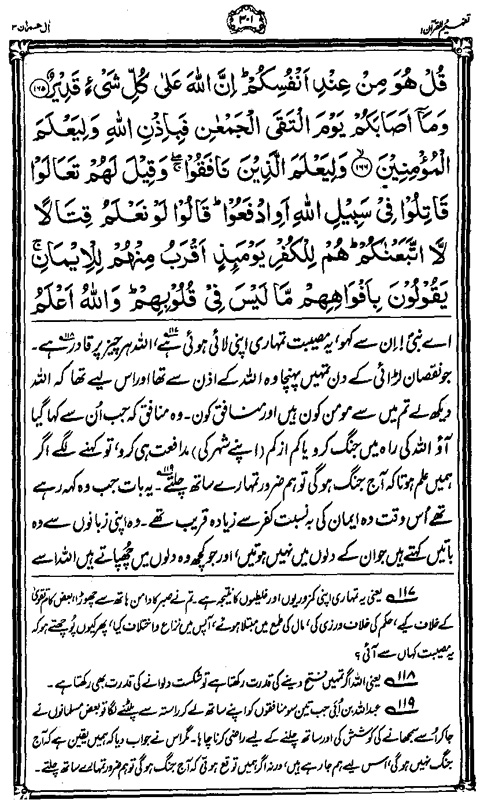 تفہیم القرآن ۱
۳۰۱
آل عمران ۳
قُلْ هُوَ مِنْ عِنْدِ اَنْفُسِكُمْ ؕ اِنَّ اللّٰهَ عَلٰى كُلِّ شَىْءٍ قَدِيْرٌ ﴿۱۶۵﴾
وَمَاۤ اَصَابَكُمْ يَوْمَ الْتَقَى الْجَمْعٰنِ فَبِاِذْنِ اللّٰهِ وَلِيَعْلَمَ
الْمُؤْمِنِيْنَ ﴿۱۶۶﴾ وَلِيَعْلَمَ الَّذِيْنَ نَافَقُوْا ۖۚ وَقِيْلَ لَهُمْ تَعَالَوْا
قَاتِلُوْا فِىْ سَبِيْلِ اللّٰهِ اَوِ ادْفَعُوْا ؕ قَالُوْا لَوْ نَعْلَمُ قِتَالًا
لَّا اتَّبَعْنٰكُمْ ؕ هُمْ لِلْكُفْرِ يَوْمَىِٕذٍ اَقْرَبُ مِنْهُمْ لِلْاِيْمَانِ ۚ
يَقُوْلُوْنَ بِاَفْوَاهِهِمْ مَّا لَيْسَ فِىْ قُلُوْبِهِمْ ؕ وَاللّٰهُ اَعْلَمُ
اے نبیؐ! اِن سے کہو، یہ مصیبت تمہاری اپنی لائی ہوئی ہے۱۱۷، اللہ ہر چیز پر قادر ہے۱۱۸۔
جو نقصان لڑائی کے دن تمہیں پہنچا وہ اللہ کے اذن سے تھا اور اس لیے تھا کہ اللہ
دیکھ لے تم میں سے مومن کون ہیں اور منافق کون۔ وہ منافق کہ جب اُن سے کہا گیا
آؤ اللہ کی راہ میں جنگ کرو یا کم از کم (اپنے شہر کی) مدافعت ہی کرو، تو کہنے لگے اگر
ہمیں علم ہوتا کہ آج جنگ ہو گی تو ہم ضرور تمہارے ساتھ چلتے۱۱۹۔ یہ بات جب وہ کہہ رہے
تھے اُس وقت وہ ایمان کی بہ نسبت کفر سے زیادہ قریب تھے۔ وہ اپنی زبانوں سے وہ
باتیں کہتے ہیں جو ان کے دلوں میں نہیں ہوتیں، اور جو کچھ وہ دلوں میں چھپاتے ہیں اللہ اسے
۱۱۷ یعنی یہ تمہاری اپنی کمزوریوں اور غلطیوں کا نتیجہ ہے۔ تم نے صبر کا دامن ہاتھ سے چھوڑا، بعض کام تقویٰ
کے خلاف کیے، حکم کی خلاف ورزی کی، مال کی طمع میں مبتلا ہوئے، آپس میں نزاع و اختلاف کیا، پھر کیوں پوچھتے ہو کہ
یہ مصیبت کہاں سے آئی؟
۱۱۸ یعنی اللہ اگر تمہیں فتح دینے کی قدرت رکھتا ہے تو شکست دلوانے کی قدرت بھی رکھتا ہے۔
۱۱۹ عبداللہ بن اُبَی جب تین سو منافقوں کو اپنے ساتھ لے کر راستہ سے پلٹنے لگا تو بعض مسلمانوں نے
جا کر اُسے سمجھانے کی کوشش کی اور ساتھ چلنے کے لیے راضی کرنا چاہا۔ مگر اس نے جواب دیا کہ ہمیں یقین ہے کہ آج
جنگ نہیں ہو گی، اس لیے ہم جا رہے ہیں، ورنہ اگر ہمیں توقع ہوتی کہ آج جنگ ہو گی تو ہم ضرور تمہارے ساتھ چلتے۔